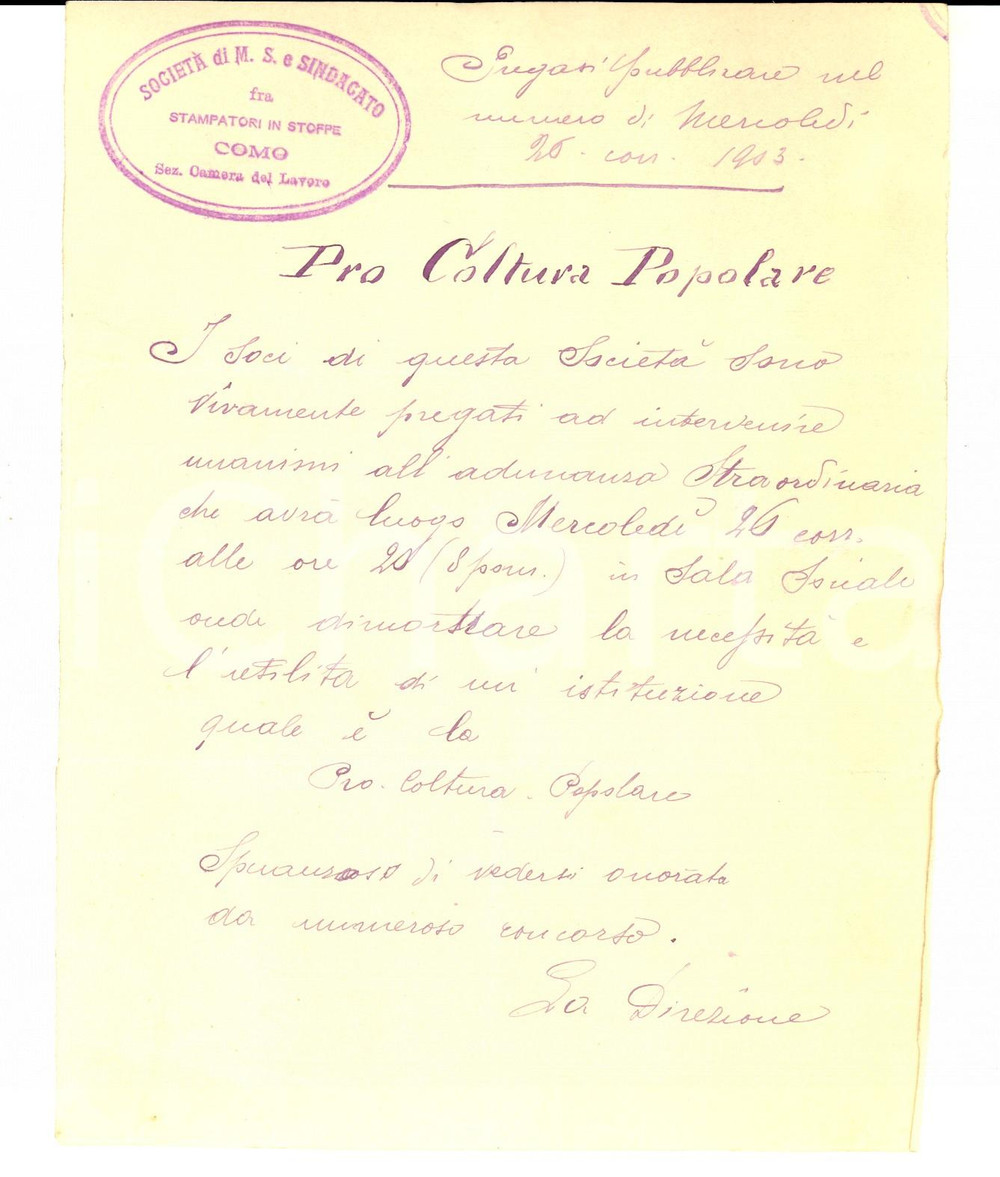 SOCIETÀ di M. S. e SINDACATO
fra
STAMPATORI IN STOFFE
COMO
Sez. Camera del Lavoro
Pregasi pubblicare nel
numero di Mercoledì
26 corr. 1903.
Pro Coltura Popolare
I Soci di questa Società sono
vivamente pregati ad intervenire
unanimi all'adunanza Straordinaria
che avrà luogo Mercoledì 26 corr.
alle ore 20 (8 pom.) in Sala Sociale
onde dimostrare la necessità e
l'utilità di un'istituzione
quale è la
Pro-Coltura-Popolare
Speranzoso di vedersi onorata
da numeroso concorso.
La Direzione